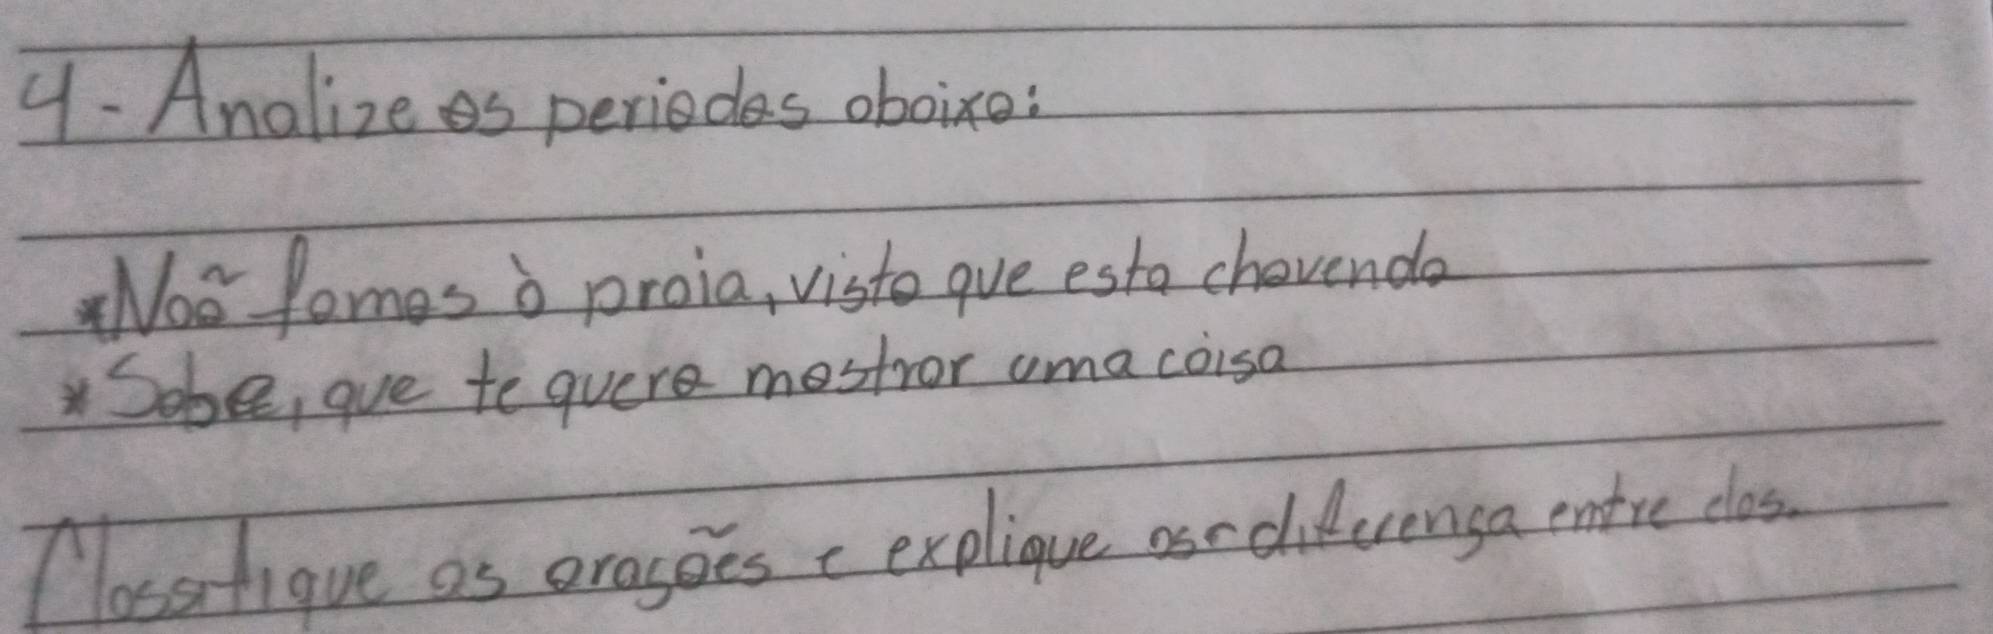 4- Analize os periodos abaixo:
*Não fomos à praia, visto que esta chovendo
*Sobe, que te quero mostrar uma coisa
Classifique as orações e explique as diferença entre elas.